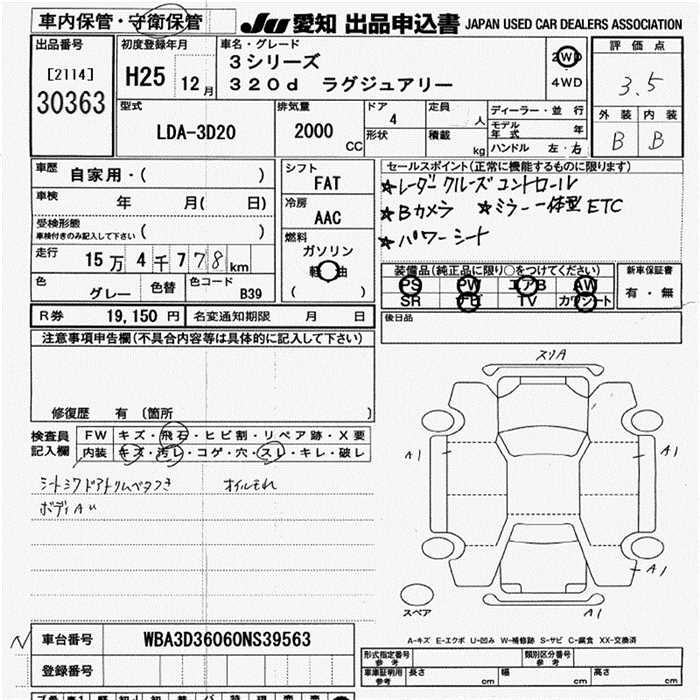 車内保管・守衛保管
JU 愛知 出品申込書 JAPAN USED CAR DEALERS ASSOCIATION
出品番号
[2114]
30363
初度登録年月
H25 12月
車名・グレード
3シリーズ
320d ラグジュアリー
2WD
4WD
評価点
3.5
外装 内装
B B
型式
LDA-3D20
排気量
2000 CC
ドア
4
形状
定員 人
積載 kg
ディーラー・並行
モデル年式 年
ハンドル 左・右
車歴
自家用・( )
車検 年 月( 日)
受検形態
車検付きのみ記入して下さい ( )
走行 15万4千778km
色 グレー 色替 色コード B39
シフト
FAT
冷房
AAC
燃料
ガソリン
軽油
( )
セールスポイント(正常に機能するものに限ります)
★レーダークルーズコントロール
★Bカメラ ★ミラー一体型ETC
★パワーシート
装備品(純正品に限り○をつけてください)
PS PW エアB AW
SR ナビ TV カワシート
新車保証書
有・無
R券 19,150円 名変通知期限 月 日
後日品
注意事項申告欄(不具合内容等は具体的に記入して下さい)
修復歴 有 (箇所 )
検査員記入欄
FW キズ・飛石・ヒビ割・リペア跡・X要
内装 キズ・汚レ・コゲ・穴・スレ・キレ・破レ
シートシワ ドアトリムベタつき オイルモれ
ボディAU
スリA
A1
A1
A1
A1
スペア
A-キズ E-エクボ U-凹み W-補修跡 S-サビ C-腐食 XX-交換済
N 車台番号 WBA3D36060NS39563
登録番号
形式指定番号 参考 類別区分番号 参考
車庫証明用 参考 長さ cm 幅 cm 高さ cm